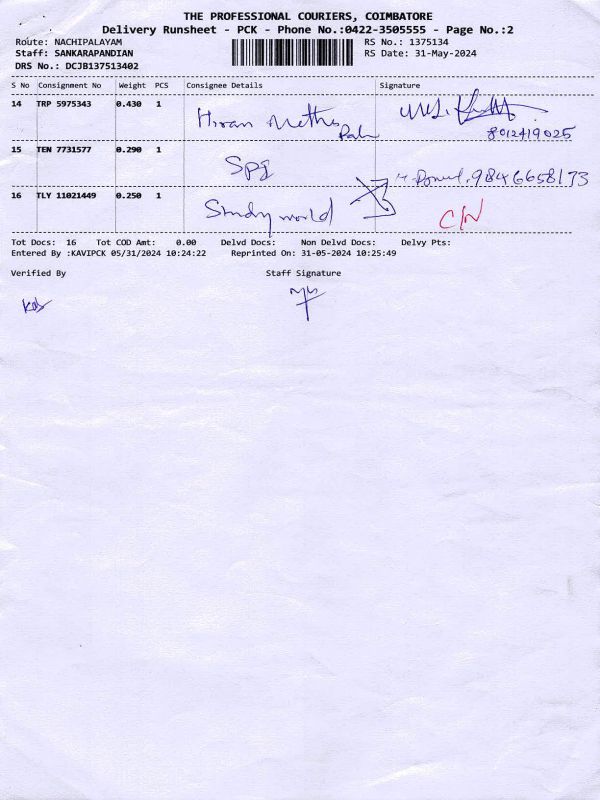 THE PROFESSIONAL COURIERS, COIMBATORE
Delivery Runsheet - PCK - Phone No.:0422-3505555 - Page No.:2
Route: NACHIPALAYAM
RS No.: 1375134
Staff: SANKARAPANDIAN
RS Date: 31-May-2024
DRS No.: DCJB137513402
S No Consignment No Weight PCS Consignee Details Signature
14 TRP 5975343 0.430 1 Hiran
8012419025
15 TEN 7731577 0.290 1 Spg
9846658173
16 TLY 11021449 0.250 1 Study world
C/N
Tot Docs: 16 Tot COD Amt: 0.00 Delvd Docs: Non Delvd Docs: Delvy Pts:
Entered By :KAVIPCK 05/31/2024 10:24:22 Reprinted On: 31-05-2024 10:25:49
Verified By Staff Signature